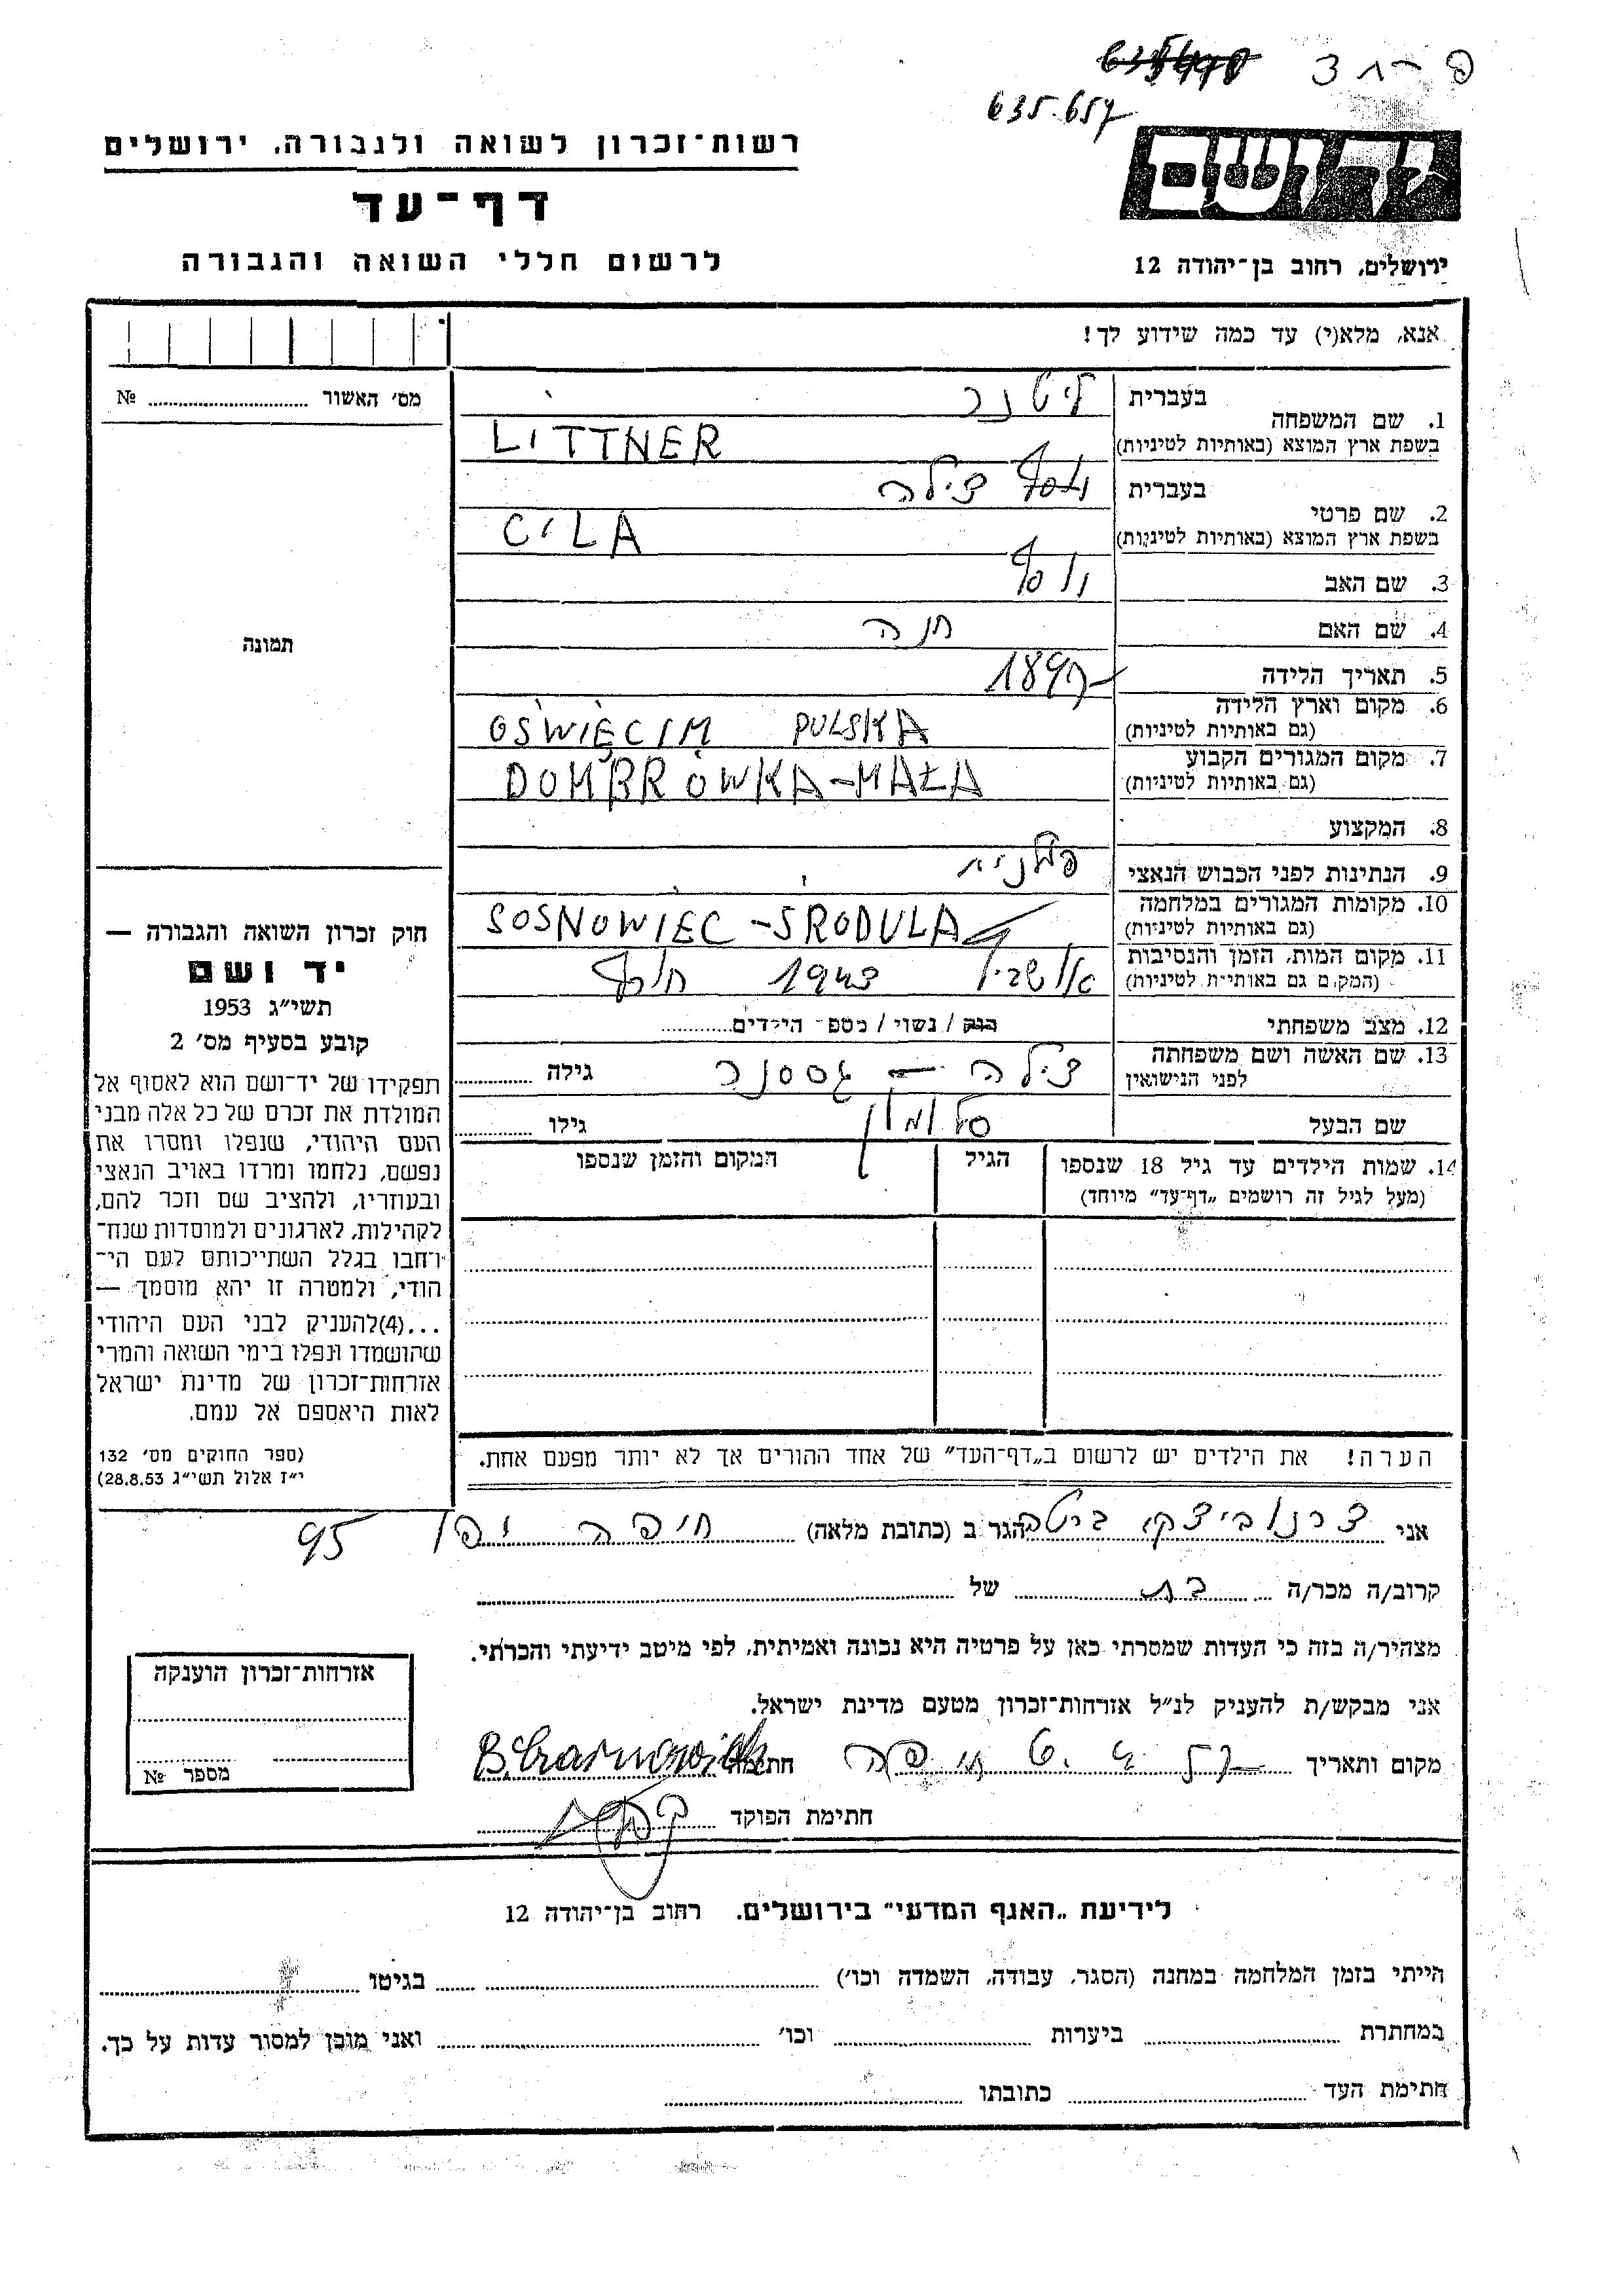 635.657
רשות־זכרון לשואה ולגבורה, ירושלים
יד ושם
דף־עד
לרשום חללי השואה והגבורה
ירושלים, רחוב בן־יהודה 12
אנא, מלא(י) עד כמה שידוע לך!
מס׳ האשור № 
1. שם המשפחה
בעברית ליטנר
בשפת ארץ המוצא (באותיות לטיניות) LITTNER
2. שם פרטי
בעברית צילה
בשפת ארץ המוצא (באותיות לטיניות) CILA
3. שם האב יוסף
4. שם האם חנה
5. תאריך הלידה
6. מקום וארץ הלידה (גם באותיות לטיניות) OŚWIĘCIM PULSKA
7. מקום המגורים הקבוע (גם באותיות לטיניות) DOMBRÓWKA-MAŁA
8. המקצוע
9. הנתינות לפני הכבוש הנאצי פולניה
10. מקומות המגורים במלחמה (גם באותיות לטיניות) SOSNOWIEC-ŚRODULA
11. מקום המות, הזמן והנסיבות (המקום גם באותיות לטיניות) אושביץ 1943 חורף
12. מצב משפחתי רווק / נשוי / מספר הילדים
13. שם האשה ושם משפחתה לפני הנישואין צילה – גסנר גילה
שם הבעל סלומון גילו
14. שמות הילדים עד גיל 18 שנספו הגיל המקום והזמן שנספו
(מעל לגיל זה רושמים „דף־עד״ מיוחד)
תמונה
חוק זכרון השואה והגבורה —
יד ושם
תשי״ג 1953
קובע בסעיף מס׳ 2
תפקידו של יד־ושם הוא לאסוף אל
המולדת את זכרם של כל אלה מבני
העם היהודי, שנפלו ומסרו את
נפשם, נלחמו ומרדו באויב הנאצי
ובעוזריו, ולהציב שם וזכר להם,
לקהילות, לארגונים ולמוסדות שנח־
רבו בגלל השתייכותם לעם הי־
הודי, ולמטרה זו יהא מוסמך —
...(4)להעניק לבני העם היהודי
שהושמדו ונפלו בימי השואה והמרי
אזרחות־זכרון של מדינת ישראל
לאות היאספם אל עמם.
(ספר החוקים מס׳ 132
י״ז אלול תשי״ג 28.8.53)
הערה! את הילדים יש לרשום ב„דף־העד״ של אחד ההורים אך לא יותר מפעם אחת.
אני צרנוביצקי ברטה הגר ב (כתובת מלאה) חיפה יפו 95
קרוב/ה מכר/ה בת של
מצהיר/ה בזה כי העדות שמסרתי כאן על פרטיה היא נכונה ואמיתית, לפי מיטב ידיעתי והכרתי.
אני מבקש/ת להעניק לנ״ל אזרחות־זכרון מטעם מדינת ישראל.
מקום ותאריך חיפה חתימה
חתימת הפוקד
אזרחות־זכרון הוענקה
מספר №
לידיעת „האגף המדעי״ בירושלים. רחוב בן־יהודה 12
הייתי בזמן המלחמה במחנה (הסגר, עבודה, השמדה וכו׳) בגיטו
במחתרת ביערות וכו׳ ואני מוכן למסור עדות על כך.
חתימת העד כתובתו